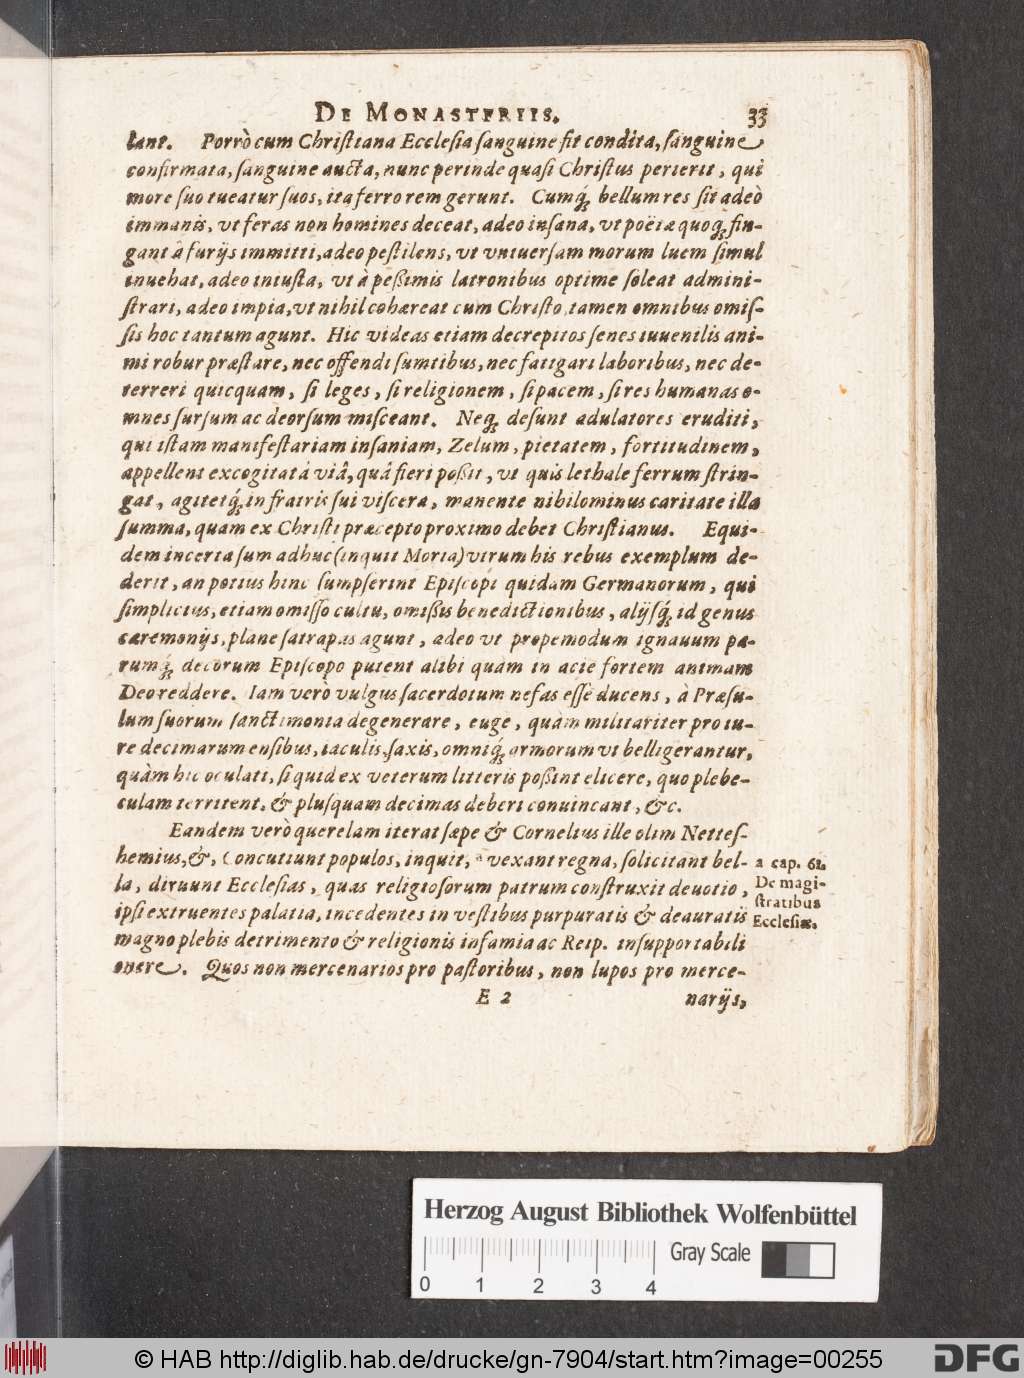 DE MONASTERIIS. 33
lant. Porrò cum Christiana Ecclesia sanguine sit condita, sanguine
confirmata, sanguine aucta, nunc perinde quasi Christus perierit, qui
more suo tueatur suos, ita ferro rem gerunt. Cumq́; bellum res sit adeò
immanis, vt feras non homines deceat, adeo insana, vt poëtæ quoq; fin-
gant à furijs immitti, adeo pestilens, vt vniuersam morum luem simul
inuehat, adeo iniusta, vt à peßimis latronibus optime soleat admini-
strari, adeo impia, vt nihil cohæreat cum Christo, tamen omnibus omis-
sis hoc tantum agunt. Hic videas etiam decrepitos senes iuuenilis ani-
mi robur præstare, nec offendi sumtibus, nec fatigari laboribus, nec de-
terreri quicquam, si leges, si religionem, si pacem, si res humanas o-
mnes sursum ac deorsum misceant. Neq; desunt adulatores eruditi,
qui istam manifestariam insaniam, Zelum, pietatem, fortitudinem,
appellent excogitata viâ, quâ fieri poßit, vt quis lethale ferrum strin-
gat, agitetq́; in fratris sui viscera, manente nihilominus caritate illa
summa, quam ex Christi præcepto proximo debet Christianus. Equi-
dem incerta sum adhuc (inquit Moria) vtrum his rebus exemplum de-
derit, an potius hinc sumpserint Episcopi quidam Germanorum, qui
simplicius, etiam omisso cultu, omißis benedictionibus, alijsq́; id genus
cæremonijs, plane satrapas agunt, adeo vt propemodum ignauum pa-
rumq́; decorum Episcopo putent alibi quam in acie fortem animam
Deo reddere. Iam verò vulgus sacerdotum nefas esse ducens, à Præsu-
lum suorum sanctimonia degenerare, euge, quàm militariter pro iu-
re decimarum ensibus, iaculis, saxis, omniq́; armorum vi belligerantur,
quàm hic oculati, si quid ex veterum litteris poßint elicere, quo plebe-
culam territent, & plusquam decimas deberi conuincant, &c.
Eandem verò querelam iterat sæpe & Cornelius ille olim Nettes-
hemius, &, Concutiunt populos, inquit, ᵃ vexant regna, solicitant bel- a cap. 61.
la, diruunt Ecclesias, quas religiosorum patrum construxit deuotio, De magi-
stratibus
ipsi extruentes palatia, incedentes in vestibus purpuratis & deauratis Ecclesiæ.
magno plebis detrimento & religionis infamia ac Reip. insupportabili
onere. Quos non mercenarios pro pastoribus, non lupos pro merce-
E 2 narijs,
Herzog August Bibliothek Wolfenbüttel
Gray Scale
0 1 2 3 4
© HAB http://diglib.hab.de/drucke/gn-7904/start.htm?image=00255 DFG